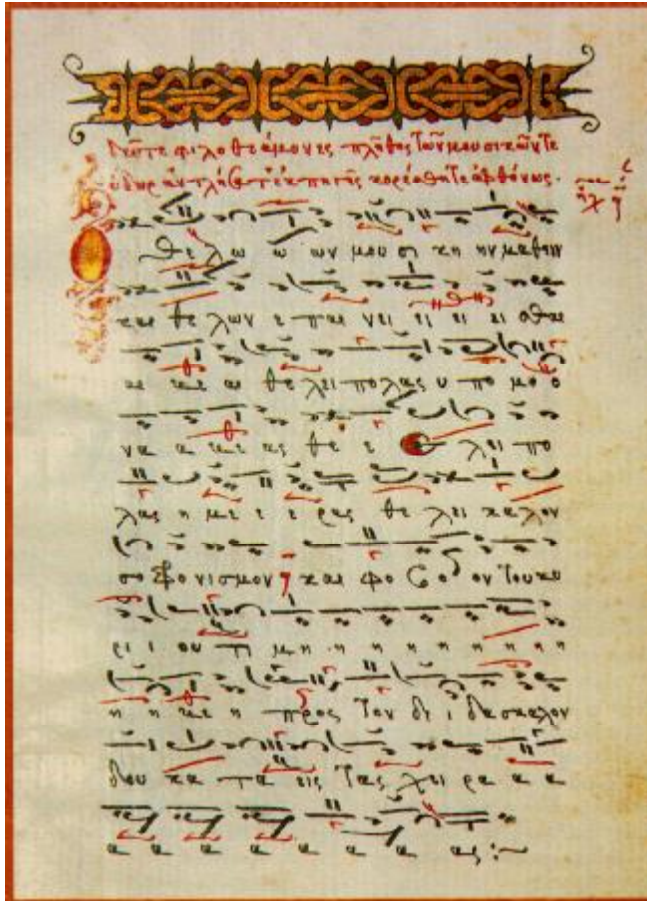 Δεῦτε φιλοθεάμονες πλῆθος τῶν μουσικῶν τε
ὕδωρ ἀντλήσατ' ἐκ πηγῆς κορέσθητε ἀφθόνως.
Ο θε λω ω ων μου σι κη ην μαθειν
και θε λων ε παι νει ει ει ει σθαι
αι αι αι θε λει πολας υ πο μο ο
να α αι ας θε ε λει πο
λας η με ε ε ρας θε λει καλον
σωφρονισμον και φο βο ον του κυ
ρι ι ου τι μη η η η η η η
η η και η προς τον δι ι δασκαλον
δου κα τα εις τας χει ρα α α
α α α α α α α ας :~